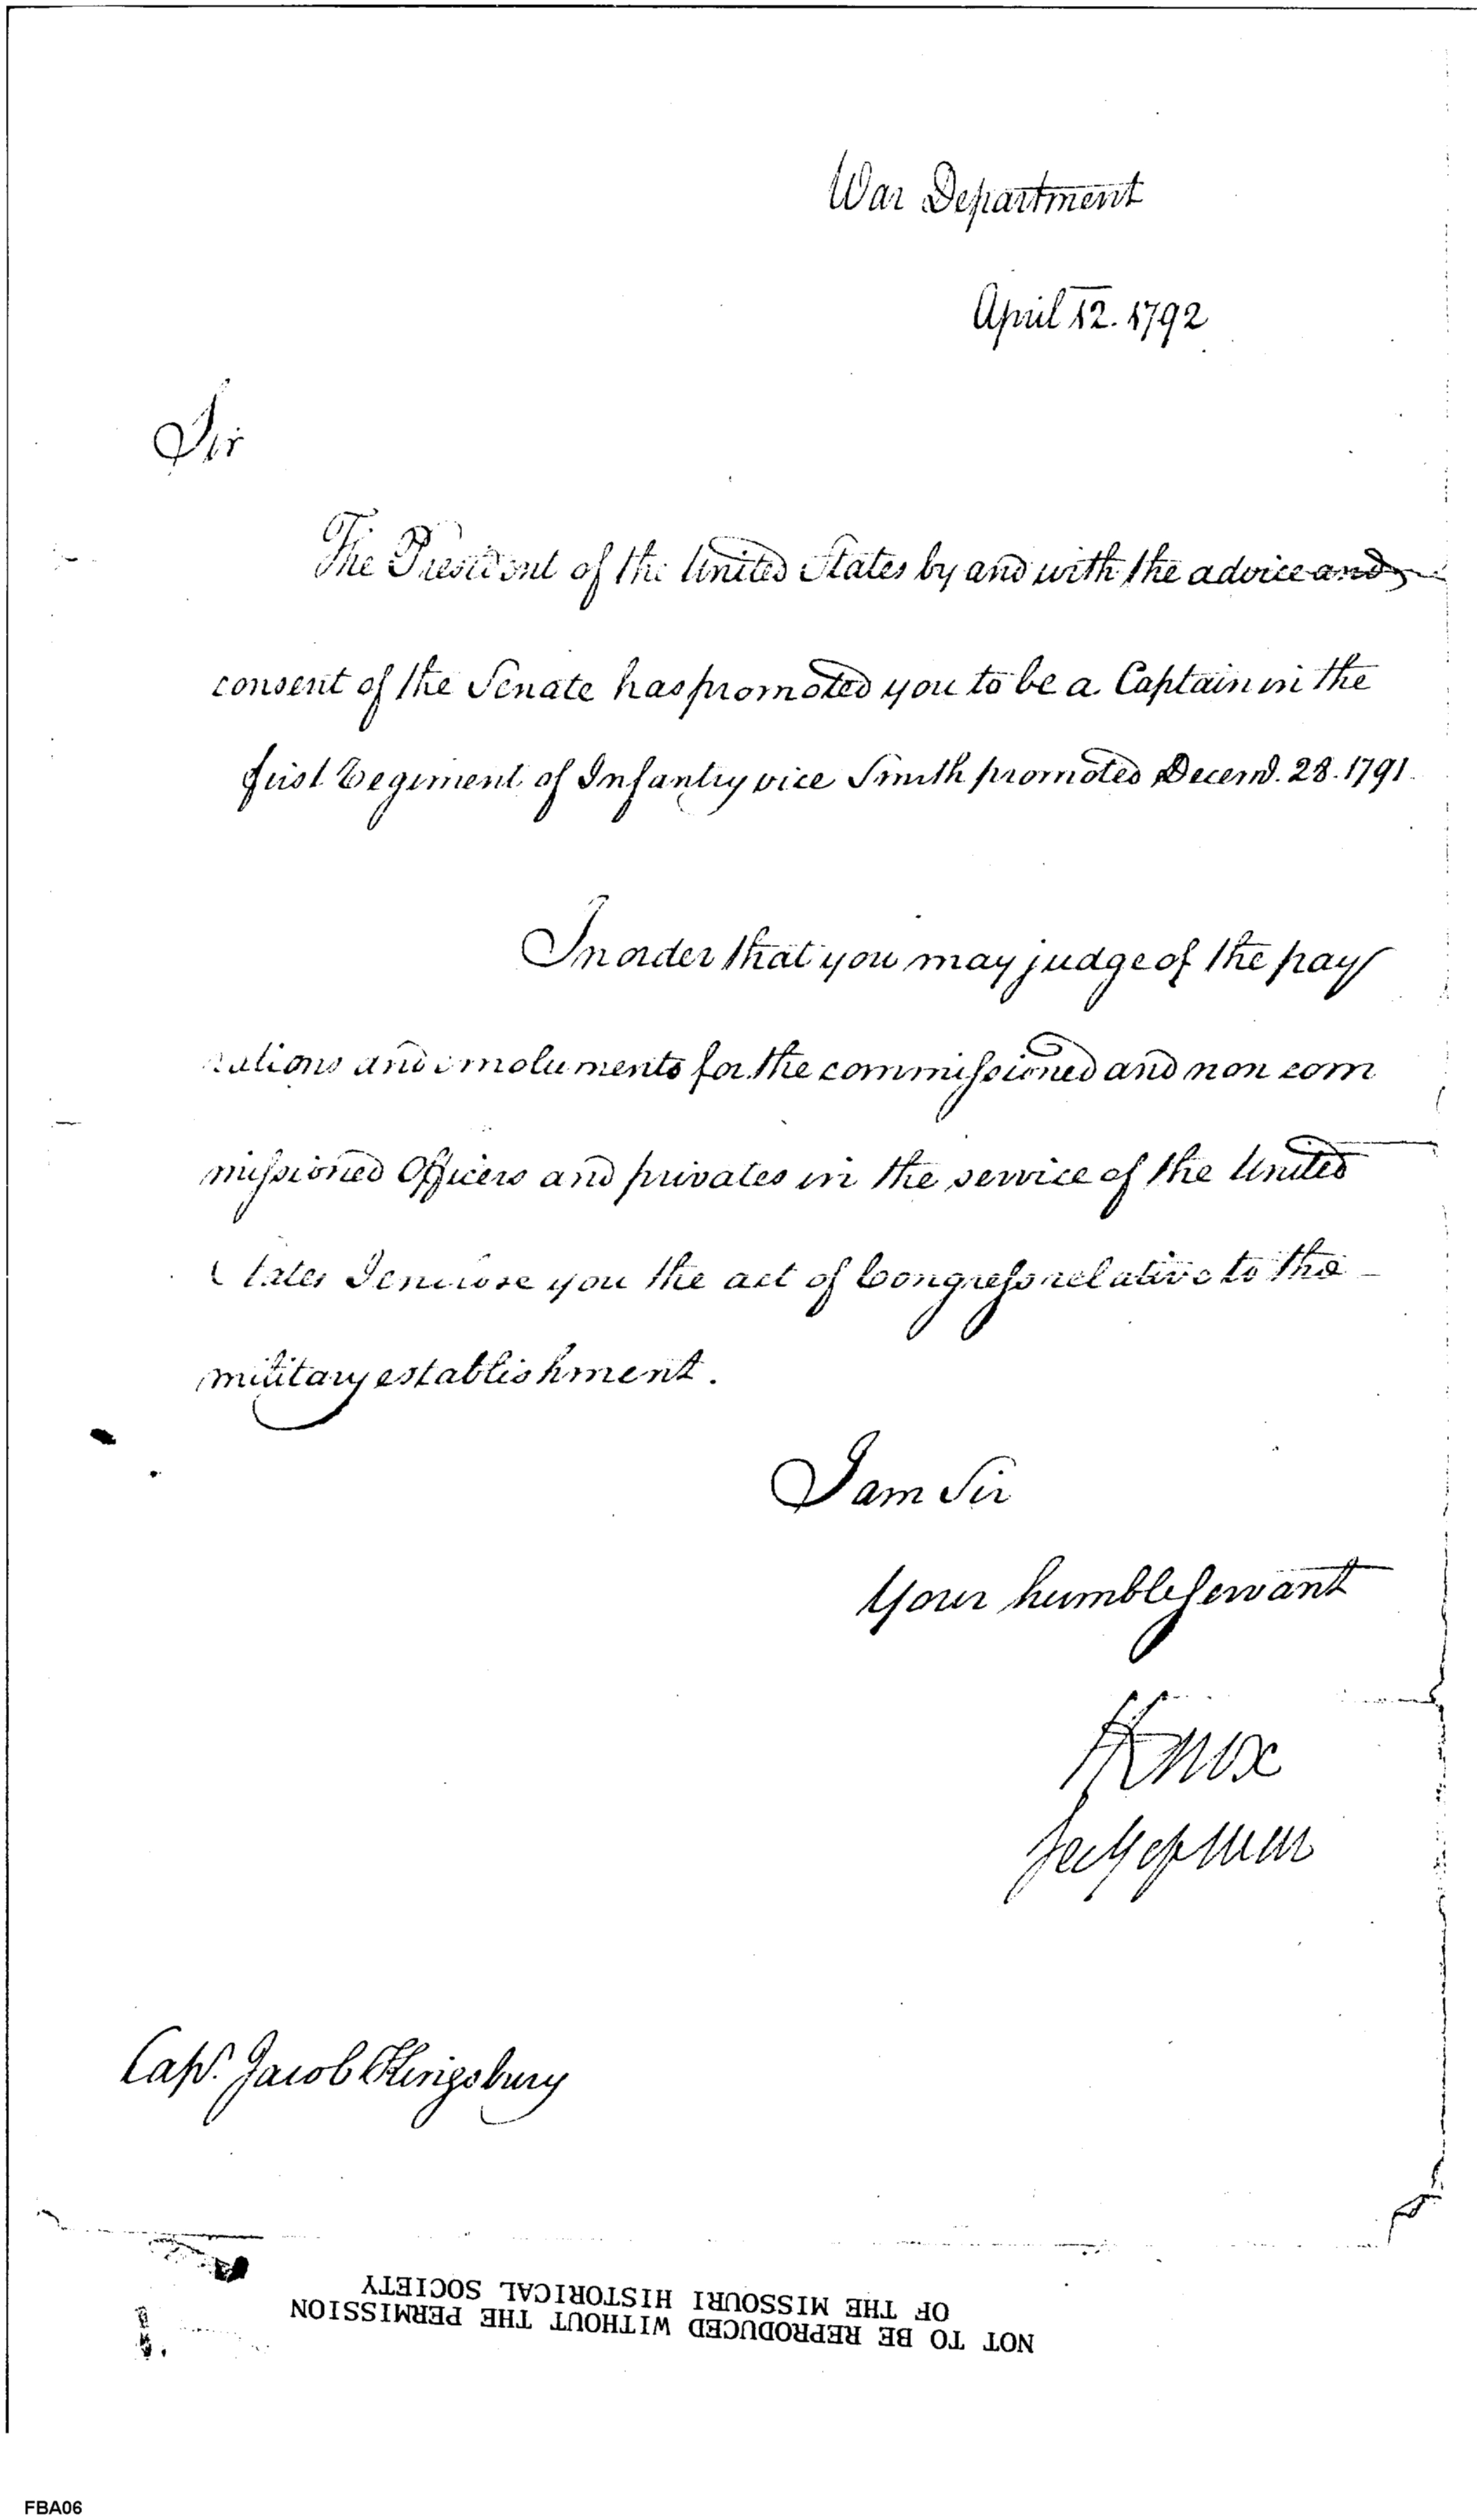 War Department
April 12. 1792
Sir
The President of the United States by and with the advice and
consent of the Senate has promoted you to be a Captain in the
first Regiment of Infantry vice Smith promoted Decemr. 28. 1791.
In order that you may judge of the pay
rations and emoluments for the commissioned and non com
missioned Officers and privates in the service of the United
States I enclose you the act of Congress relative to the
military establishment.
I am Sir
Your humble Servant
HKnox
Secy of War
Capt. Jacob Kingsbury
NOT TO BE REPRODUCED WITHOUT THE PERMISSION
OF THE MISSOURI HISTORICAL SOCIETY
FBA06